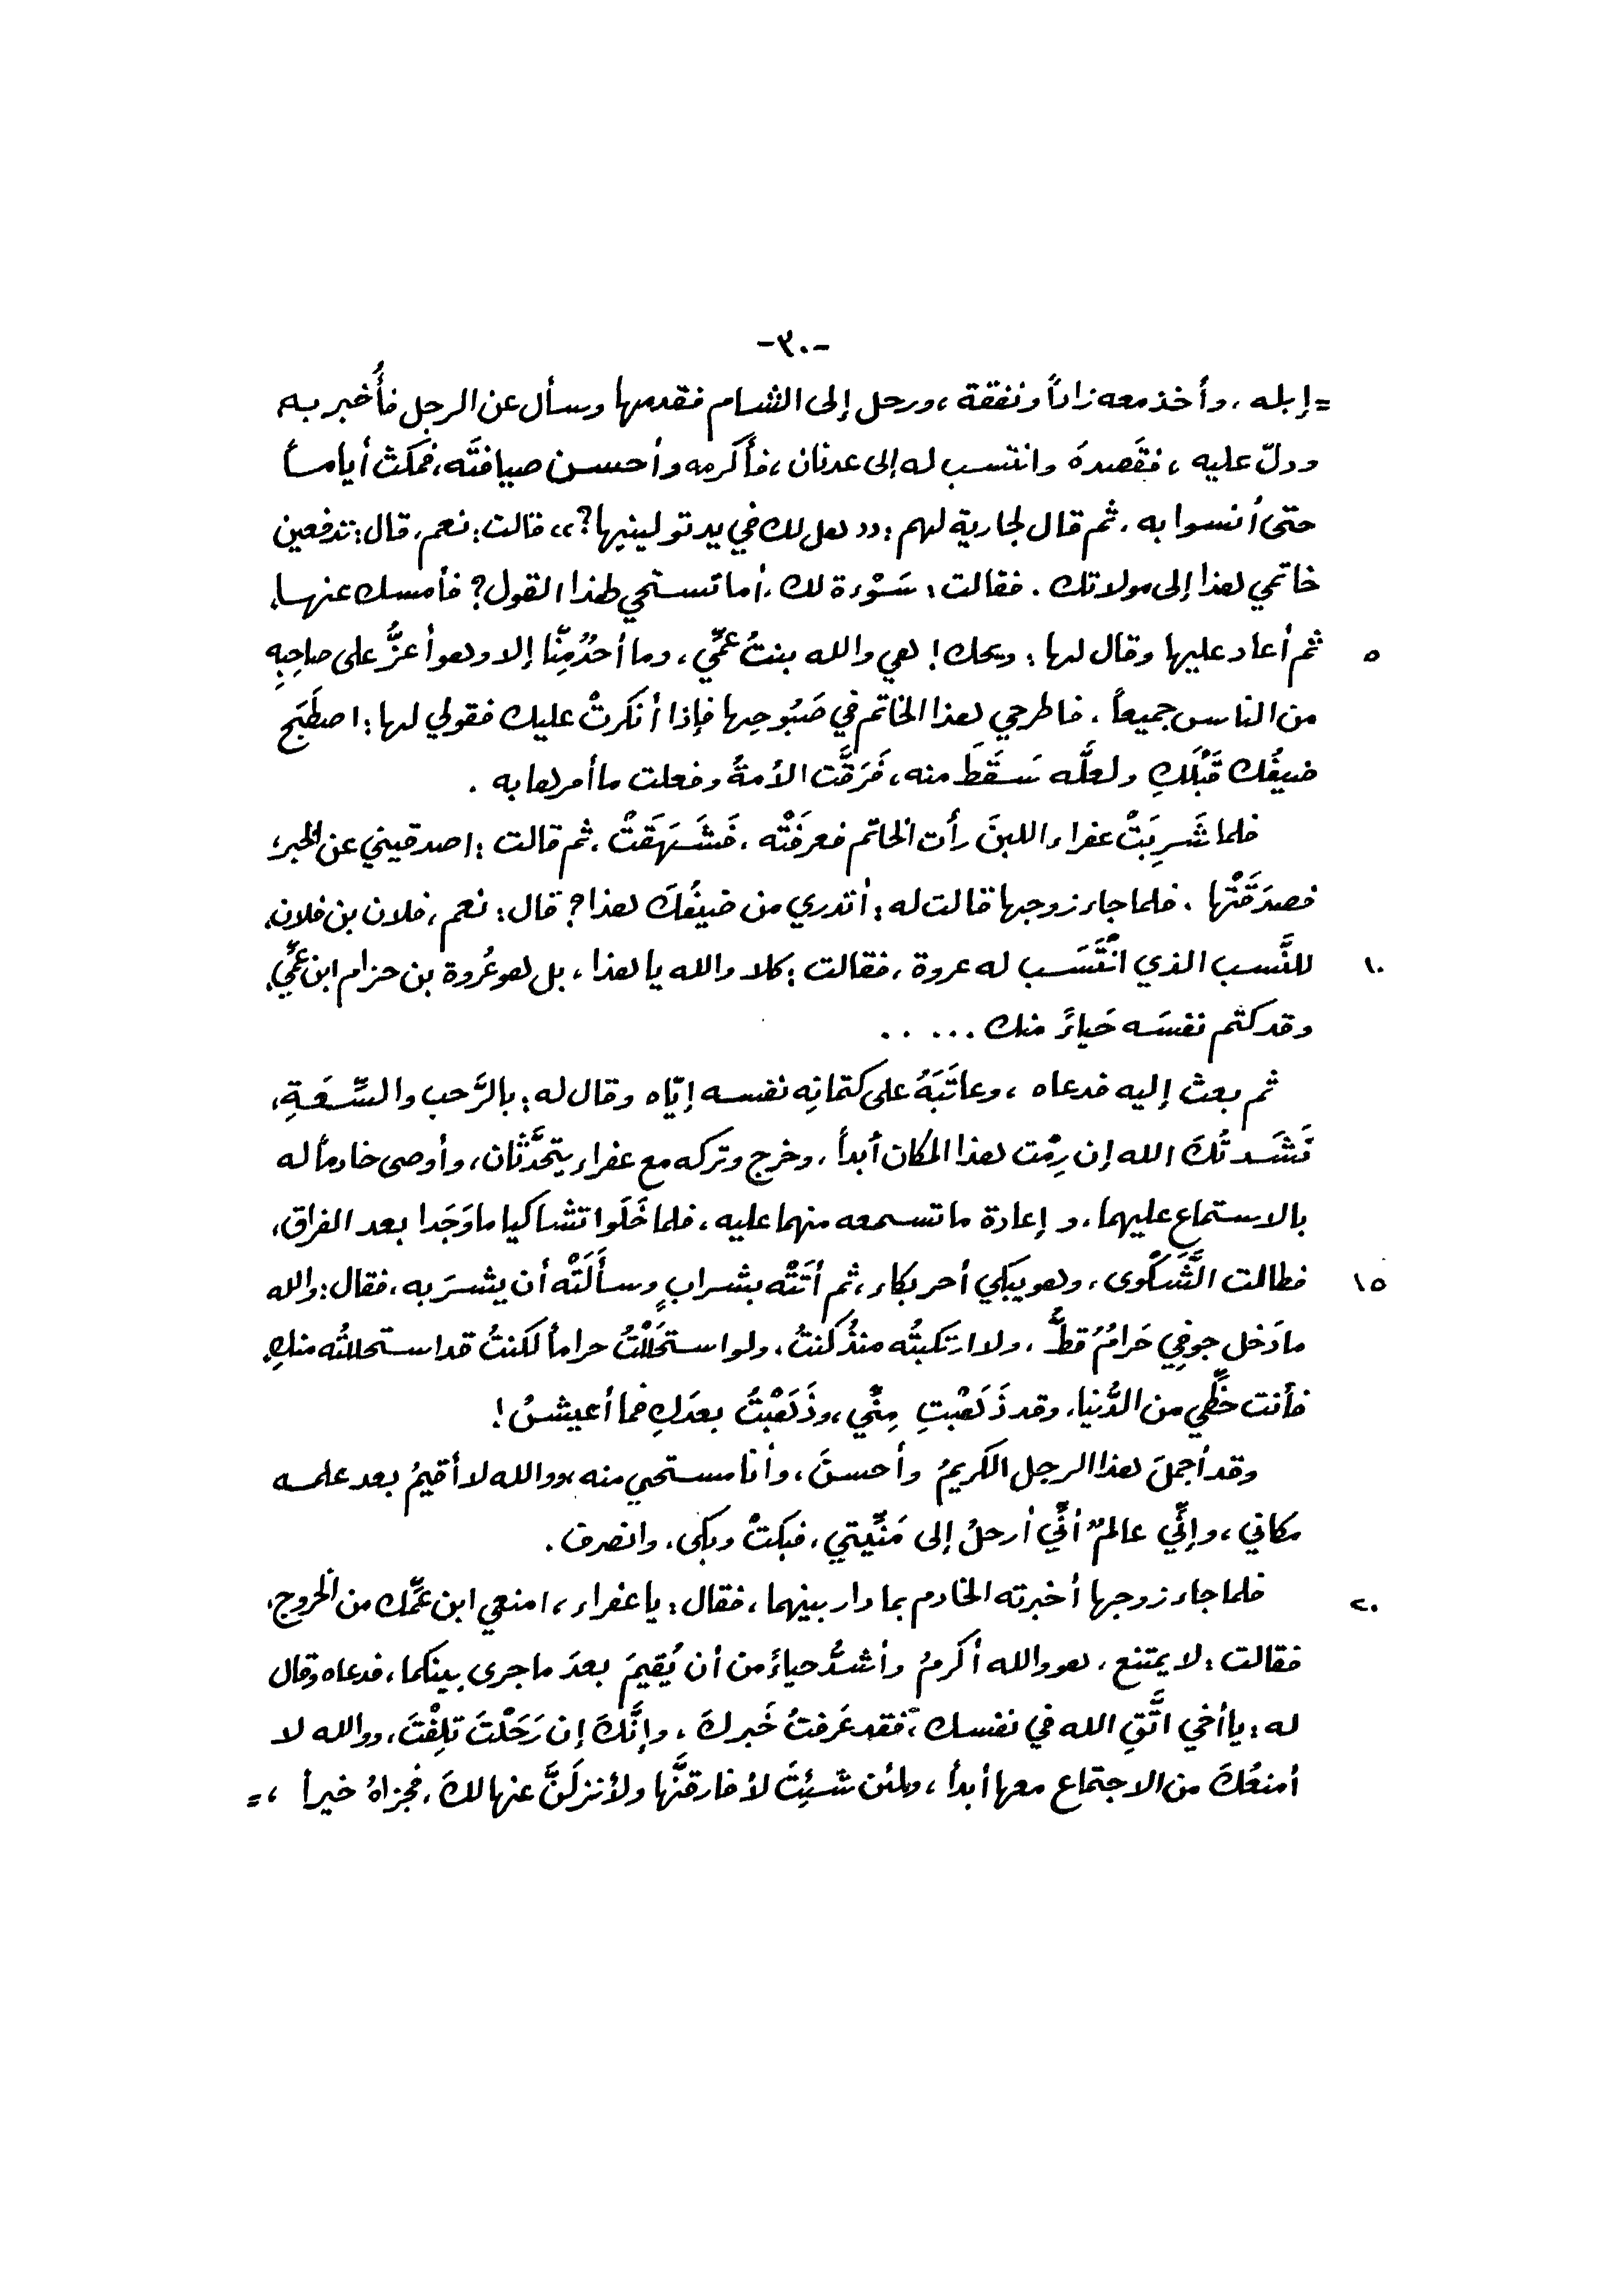 -٣٠-
= إبله ، وأخذ معه زاداً ونفقة ، ورحل إلى الشام فقدمها وسأل عن الرجل فأُخبر به
ودلّ عليه ، فقَصدهَ وانتسب له إلى عدنان ، فأكرمه وأحسن ضيافتَه ، فمكث أياماً
حتى أنسوا به . ثم قال لجارية لهم : « هل لك في يد تولينيها ؟ » قالت : نعم . قال : تدفعين
خاتمي هذا إلى مولاتك . فقالت : سَوْءة لك ، أما تستحي لهذا القول ؟ فأمسك عنها .
٥ ثم أعاد عليها وقال لها : ويحك ! هي والله بنتُ عمِّي ، وما أحدٌ مِنَّا إلا وهو أعزُّ على صاحِبِهِ
من الناس جميعاً . فاطرحي هذا الخاتم في صَبُوحِها فإذا أنكرتْ عليك فقولي لها : اصطَبَح
ضيفُك قَبْلَكِ ولعلَّه سَقَطَ منه ، فَرَقَّت الأمةُ وفعلت ما أمرها به .
فلما شَرِبَتْ عفراء اللبنَ رأت الخاتم فعرفَتْه ، فَشَهَقَتْ . ثم قالت : اصدقيني عن الخبر ،
فصدَقَتْها . فلما جاء زوجها قالت له : أتدري من ضيفُكَ هذا ؟ قال : نعم ، فلان بن فلان .
١٠ للنَّسب الذي انْتَسَب له عروة ، فقالت : كلا والله يا هذا ، بل هو عُروة بن حزام ابن عمِّي .
وقد كتم نفسَه حَياءً منك . . . . .
ثم بعث إليه فدعاه ، وعاتَبَهُ على كتمانِه نفسه إيّاه وقال له : بالرَّحب والسَّعَةِ ،
نَشَدتُكَ الله إن رِمْت هذا المكان أبداً ، وخرج وتركه مع عفراء يتحدَّثان ، وأوصى خادماً له
بالاستماع عليهما ، وإعادة ما تسمعه منهما عليه ، فلما خَلَوا تشاكيا ما وَجَدا بعد الفراق ،
١٥ فطالت الشَّكْوى ، وهو يبكي أحر بكاء ، ثم أتَتْه بشرابٍ وسأَلَتْه أن يشرَبه ، فقال : والله
ما دَخل جوفِي حَرامٌ قطُّ ، ولا ارتكبتُه منذُ كنتُ ، ولو استحَلَلْتُ حراماً لكنتُ قد استحللتُه منكِ .
فأنت حظِّي من الدُّنيا ، وقد ذَهَبْتِ مِنِّي ، وذَهَبْتُ بعدَكِ فما أعيشُ !
وقد أجملَ هذا الرجل الكريمُ وأحسنَ ، وأنا مستحي منه ، ووالله لا أقيمُ بعد علمه
مكاني ، وإنِّي عالمٌ أنِّي أرحلُ إلى مَنِّيتي ، فبكتْ وبكى ، وانصرف .
٢٠ فلما جاء زوجها أخبرته الخادم بما دار بينهما ، فقال : يا عفراء ، امنعي ابن عمِّك من الخروج ،
فقالت : لا يمتنع ، هو والله أكرمُ وأشدُّ حياءً من أن يُقيمَ بعدَ ما جرى بينكما ، فدعاه وقال
له : يا أخي اتَّقِ الله في نفسك ، فقد عَرفتُ خَبركَ ، وإنَّكَ إن رَحَلْتَ تلِفْتَ ، ووالله لا
أمنعُكَ من الاجتماع معها أبداً ، ولئن شئِتَ لأفارقنَّها ولأنزلَنَّ عنها لكَ . فجزاهُ خيراً ، =